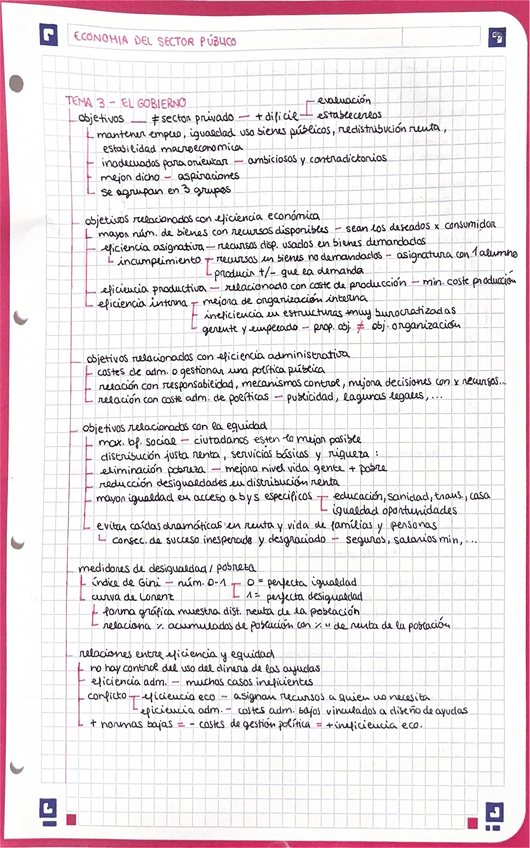 ECONOMIA DEL SECTOR PÚBLICO
TEMA 3 - EL GOBIERNO
objetivos — ≠ sector privado — + dificil — evaluación
establecerlos
mantener empleo, igualdad uso bienes públicos, redistribución renta,
estabilidad macroeconomica
inadecuados para orientar — ambiciosos y contradictorios
mejor dicho — aspiraciones
se agrupan en 3 grupos
objetivos relacionados con eficiencia económica
mayor núm. de bienes con recursos disponibles — sean los deseados x consumidor
eficiencia asignativa — recursos disp. usados en bienes demandados
incumplimiento — recursos en bienes no demandados — asignatura con 1 alumno
producir +/- que la demanda
eficiencia productiva — relacionado con coste de producción — min. coste producción
eficiencia interna — mejora de organización interna
ineficiencia en estructuras muy burocratizadas
gerente y empleado — prop. obj ≠ obj. organización
objetivos relacionados con eficiencia administrativa
costes de adm. o gestionar una política pública
relación con responsabilidad, mecanismos control, mejora decisiones con x recursos...
relación con coste adm. de políticas — publicidad, lagunas legales, ...
objetivos relacionados con la equidad
max. bf. social — ciudadanos esten lo mejor posible
distribución justa renta, servicios básicos y riqueza :
eliminación pobreza — mejora nivel vida gente + pobre
reducción desigualdades en distribución renta
mayor igualdad en acceso a b y s especificos — educación, sanidad, trans., casa
igualdad oportunidades
evitar caídas dramáticas en renta y vida de familias y personas
consec. de suceso inesperado y desgraciado — seguros, salarios min, ...
medidores de desigualdad / pobreza
índice de Gini — núm. 0-1 — 0 = perfecta igualdad
curva de Lorenz 1 = perfecta desigualdad
forma gráfica muestra dist. renta de la población
relaciona % acumulados de población con % " de renta de la población
relaciones entre eficiencia y equidad
no hay control del uso del dinero de las ayudas
eficiencia adm. — muchos casos ineficientes
conflicto — eficiencia eco — asignan recursos a quien no necesita
eficiencia adm. — costes adm. bajos vinculados a diseño de ayudas
+ normas bajas = - costes de gestión política = + ineficiencia eco.